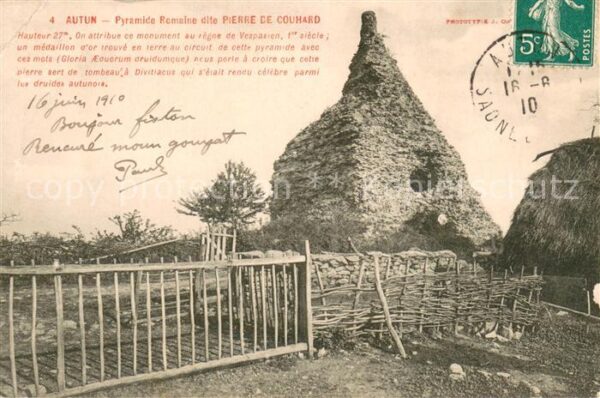 4 AUTUN – Pyramide Romaine dite PIERRE DE COUHARD
Hauteur 27m, On attribue ce monument au règne de Vespasien, 1er siècle ;
un médaillon d'or trouvé en terre au circuit de cette pyramide avec
ces mots (Gloria Æduorum druidumque) nous porte à croire que cette
pierre sert de tombeau à Divitiacus qui s'était rendu célèbre parmi
les druides autunois.
PHOTOTYPIE
5c
16 juin 1910
Bonjour fiston
moun
Paul
AUTUN
16-6
10
SAONE
copyright protection ** by Kupiersicherl